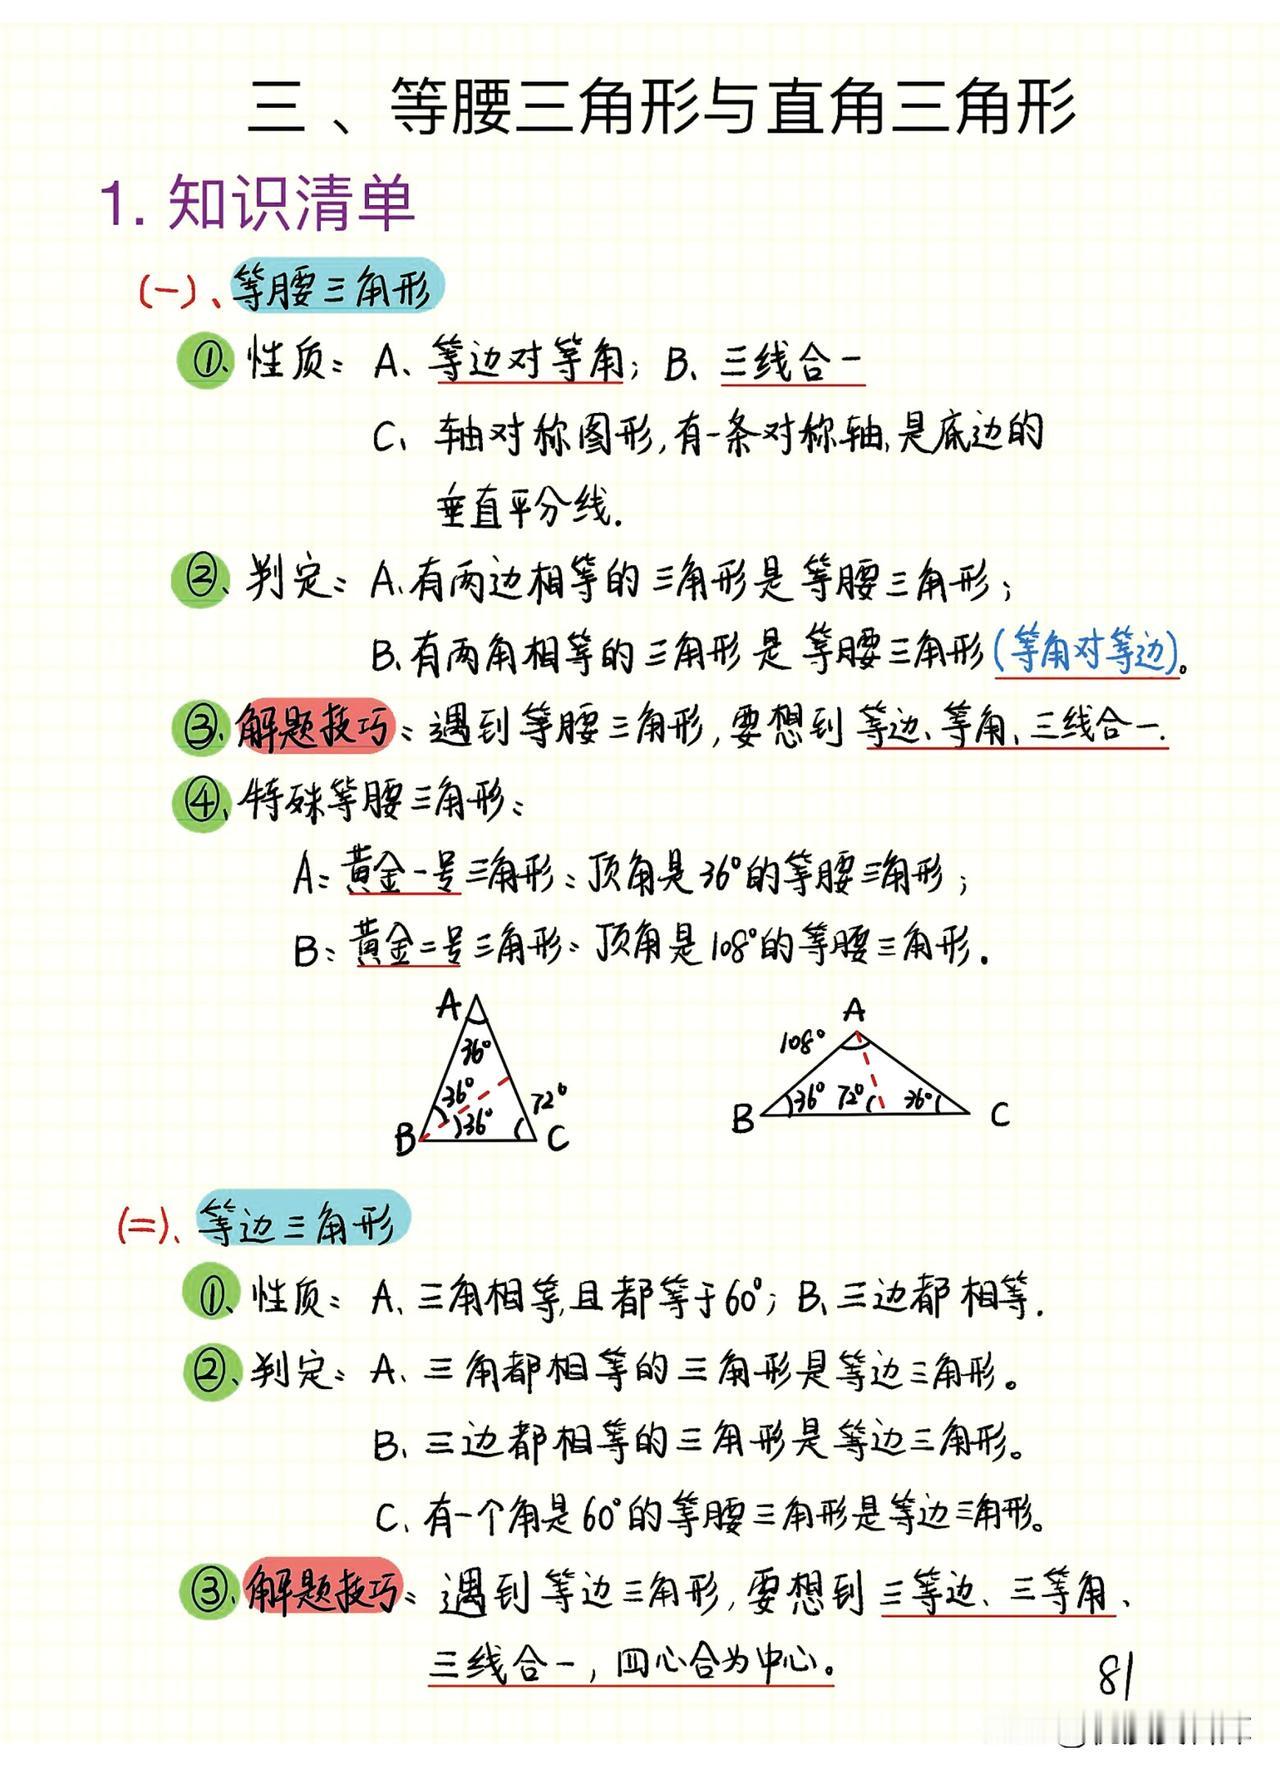 三、等腰三角形与直角三角形
1. 知识清单
(一)、等腰三角形
①、性质：A、等边对等角；B、三线合一
C、轴对称图形,有一条对称轴,是底边的
垂直平分线.
②、判定：A、有两边相等的三角形是等腰三角形；
B、有两角相等的三角形是等腰三角形(等角对等边)。
③、解题技巧：遇到等腰三角形,要想到等边、等角、三线合一.
④、特殊等腰三角形：
A：黄金一号三角形：顶角是36°的等腰三角形；
B：黄金二号三角形：顶角是108°的等腰三角形.
A
36°
36°
36°
72°
B
C
A
108°
36°
72°
36°
B
C
(二)、等边三角形
①、性质：A、三角相等,且都等于60°；B、三边都相等.
②、判定：A、三角都相等的三角形是等边三角形。
B、三边都相等的三角形是等边三角形。
C、有一个角是60°的等腰三角形是等边三角形。
③、解题技巧：遇到等边三角形,要想到三等边、三等角、
三线合一，四心合为中心。
81